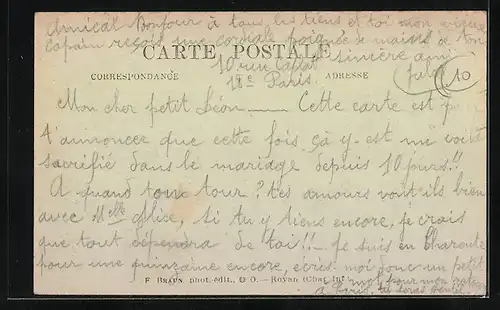 Amical Bonjour à tous les tiens et toi mon vieux
copain reçoit une cordiale poignée de mains de ton
sincère ami
CARTE POSTALE
10 rue
18e Paris.
CORRESPONDANCE
ADRESSE
10
Mon cher petit Léon ___ Cette carte est
t'annoncer que cette fois çà y-est me voilà
sacrifié dans le mariage depuis 10 jours!!
A quand ton tour? tes amours vont-ils bien
avec Mlle Alice, si tu y tiens encore, je crois
que tout dépendra de toi!! Je suis en Charente
pour une quinzaine encore, écris moi donc un petit
mot pour mon
F. BRAUN phot. édit., & O. — Royan (Char. Inf.)
à Paris, tu seras